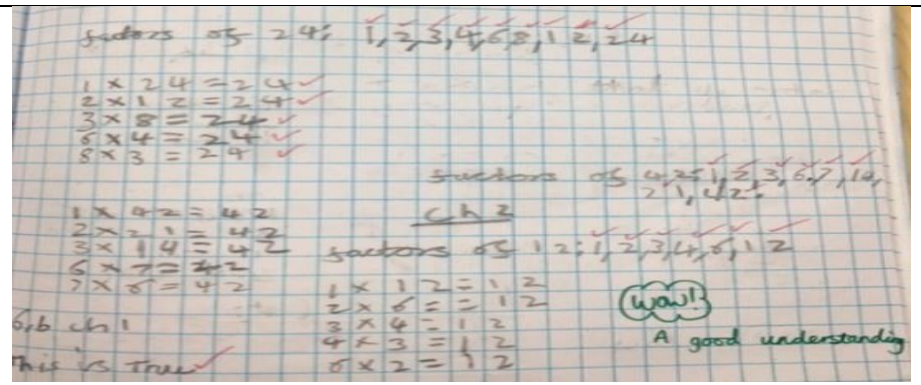 factors of 24: 1,2,3,4,6,8,12,24
1 x 24 = 24
2 x 12 = 24
3 x 8 = 24
6 x 4 = 24
8 x 3 = 24
factors of 42: 1,2,3,6,7,14,
21,42.
1 x 42 = 42
2 x 21 = 42
3 x 14 = 42
6 x 7 = 42
7 x 6 = 42
ch2
factors of 12: 1,2,3,4,6,12
1 x 12 = 12
2 x 6 = = 12
3 x 4 = 12
4 x 3 = 12
6 x 2 = 12
6,b ch1
This is True
Wow!
A good understanding